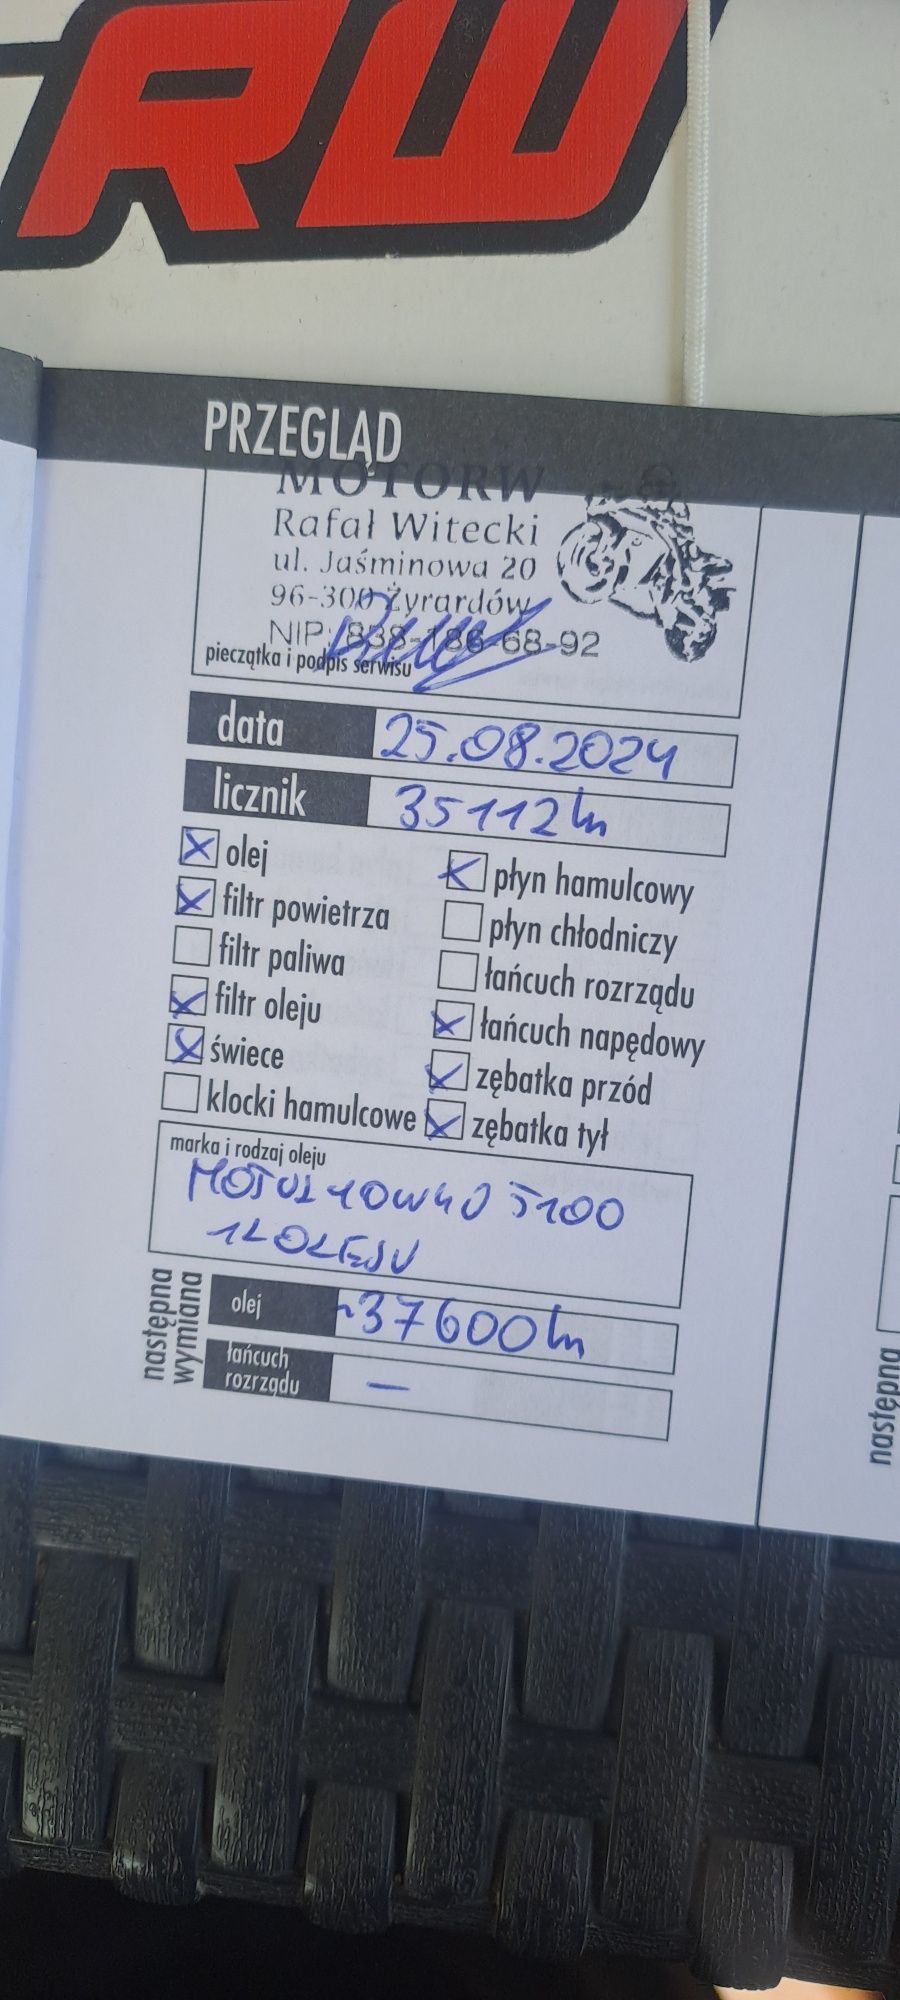 RW
PRZEGLĄD
MOTORW
Rafał Witecki
ul. Jaśminowa 20
96-300 Żyrardów
NIP: 838-186-68-92
pieczątka i podpis serwisu
data 25.08.2024
licznik 35112km
olej
płyn hamulcowy
filtr powietrza
płyn chłodniczy
filtr paliwa
łańcuch rozrządu
filtr oleju
łańcuch napędowy
świece
zębatka przód
klocki hamulcowe
zębatka tył
marka i rodzaj oleju
MOTUL 10W40 5100
1L OLEJU
następna wymiana
olej ~37600km
łańcuch rozrządu —
następna